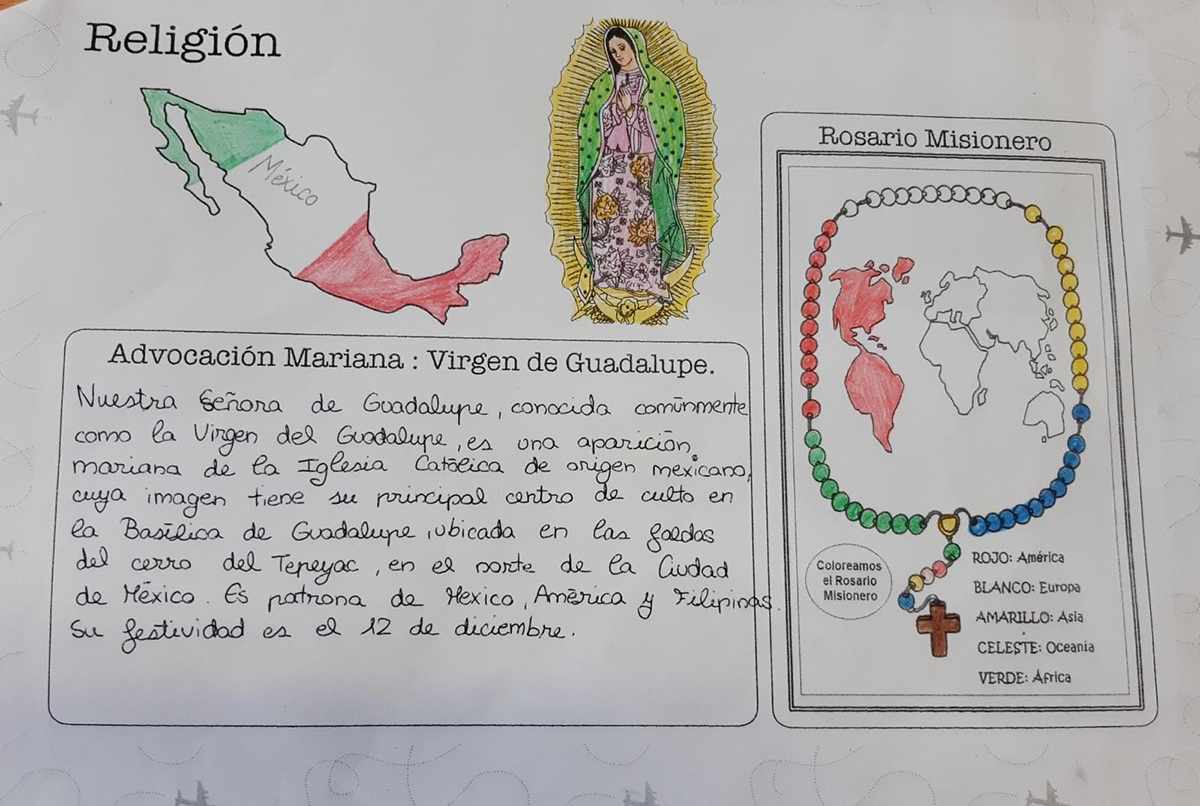 Religión
México
Advocación Mariana : Virgen de Guadalupe.
Nuestra Señora de Guadalupe, conocida comúnmente
como la Virgen del Guadalupe, es una aparición
mariana de la Iglesia Católica de origen mexicano,
cuya imagen tiene su principal centro de culto en
la Basílica de Guadalupe, ubicada en las faldas
del cerro del Tepeyac, en el norte de la Ciudad
de México. Es patrona de Mexico, América y Filipinas.
Su festividad es el 12 de diciembre.
Rosario Misionero
Coloreamos
el Rosario
Misionero
ROJO: América
BLANCO: Europa
AMARILLO: Asia
CELESTE: Oceania
VERDE: África